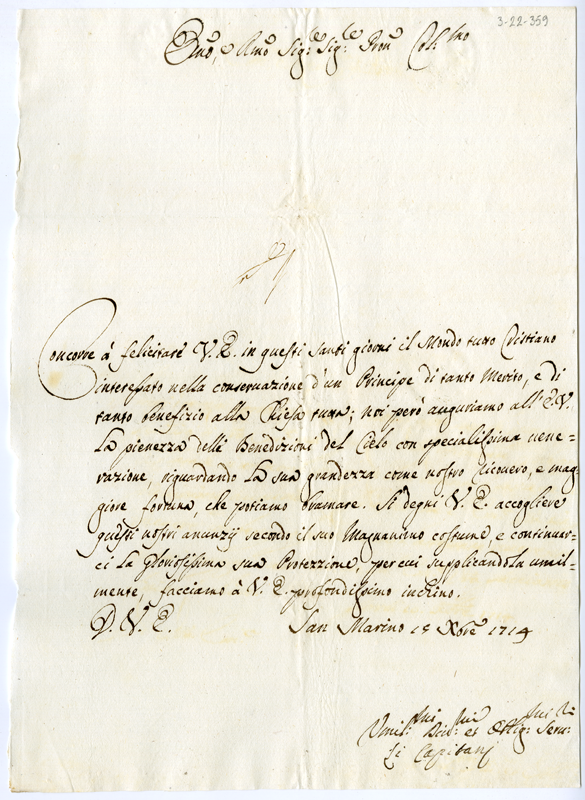 3-22-359
Emo, e Rmo Sig:re Sig:re Pron Col:mo
Concorre à felicitare V. E. in questi santi giorni il Mondo tutto Cristiano
interessato nella conservazione d'un Principe di tanto Merito, e di
tanto benefizio alla Chiesa tutta; noi però auguriamo all' E. V.
la pienezza delle Benedizioni del Cielo con specialissima vene=
razione, riguardando la sua grandezza come nostro ricovero, e mag=
giore fortuna, che potiamo bramare. Si degni V. E. accogliere
questi nostri anunzij secondo il suo Magnanimo costume, e continuar=
ci la Gloriosissima sua Protezzione, per cui supplicandola umil=
mente, facciamo à V. E. profondissimo inchino.
D. V. E. San Marino 15 Xbre 1714
Umil:mi Div:mi et Obblig:mi Seru:ri
Li Capitanj